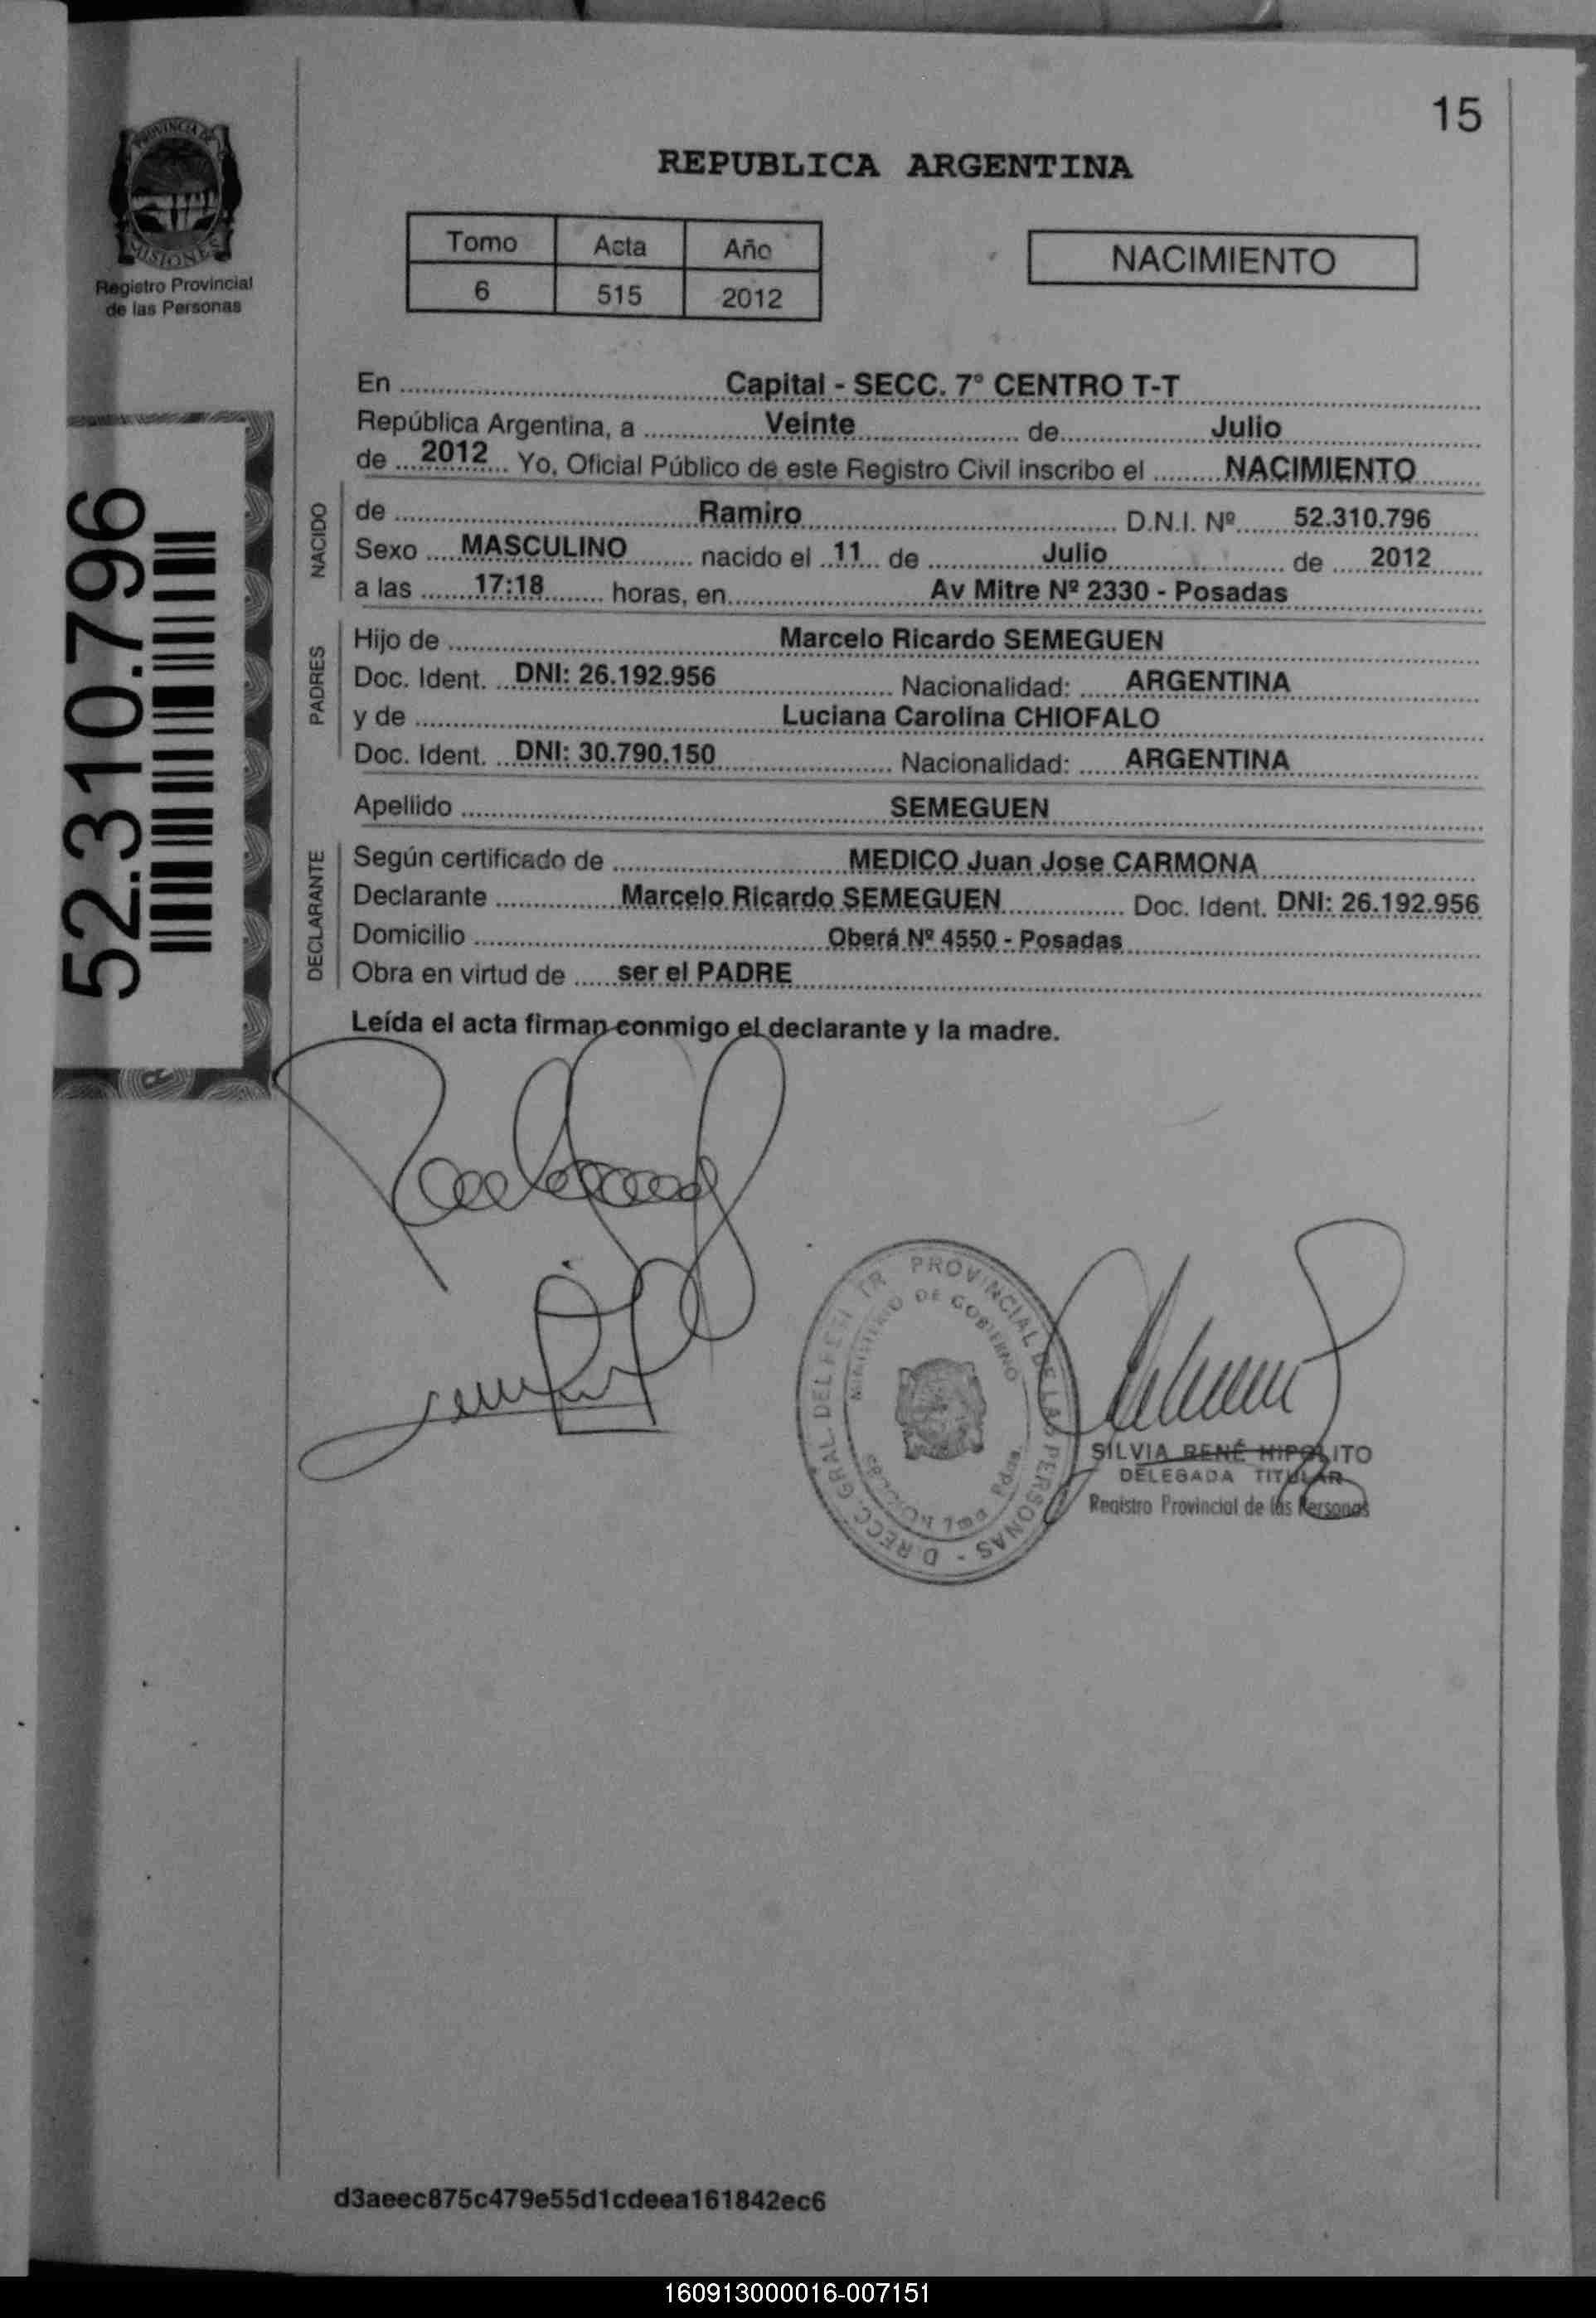 15
PROVINCIA DE
MISIONES
Registro Provincial
de las Personas
REPUBLICA ARGENTINA
Tomo Acta Año
6 515 2012
NACIMIENTO
52.310.796
En Capital - SECC. 7° CENTRO T-T
República Argentina, a Veinte de Julio
de 2012 Yo, Oficial Público de este Registro Civil inscribo el NACIMIENTO
NACIDO
de Ramiro D.N.I. Nº 52.310.796
Sexo MASCULINO nacido el 11 de Julio de 2012
a las 17:18 horas, en Av Mitre Nº 2330 - Posadas
PADRES
Hijo de Marcelo Ricardo SEMEGUEN
Doc. Ident. DNI: 26.192.956 Nacionalidad: ARGENTINA
y de Luciana Carolina CHIOFALO
Doc. Ident. DNI: 30.790.150 Nacionalidad: ARGENTINA
Apellido SEMEGUEN
DECLARANTE
Según certificado de MEDICO Juan Jose CARMONA
Declarante Marcelo Ricardo SEMEGUEN Doc. Ident. DNI: 26.192.956
Domicilio Oberá Nº 4550 - Posadas
Obra en virtud de ser el PADRE
Leída el acta firman conmigo el declarante y la madre.
PROVINCIAL DE LAS PERSONAS - D.RECC. GRAL. DEL
MINISTERIO DE GOBIERNO
SILVIA RENÉ HIPOLITO
DELEGADA TITULAR
Registro Provincial de las Personas
d3aeec875c479e55d1cdeea161842ec6
160913000016-007151